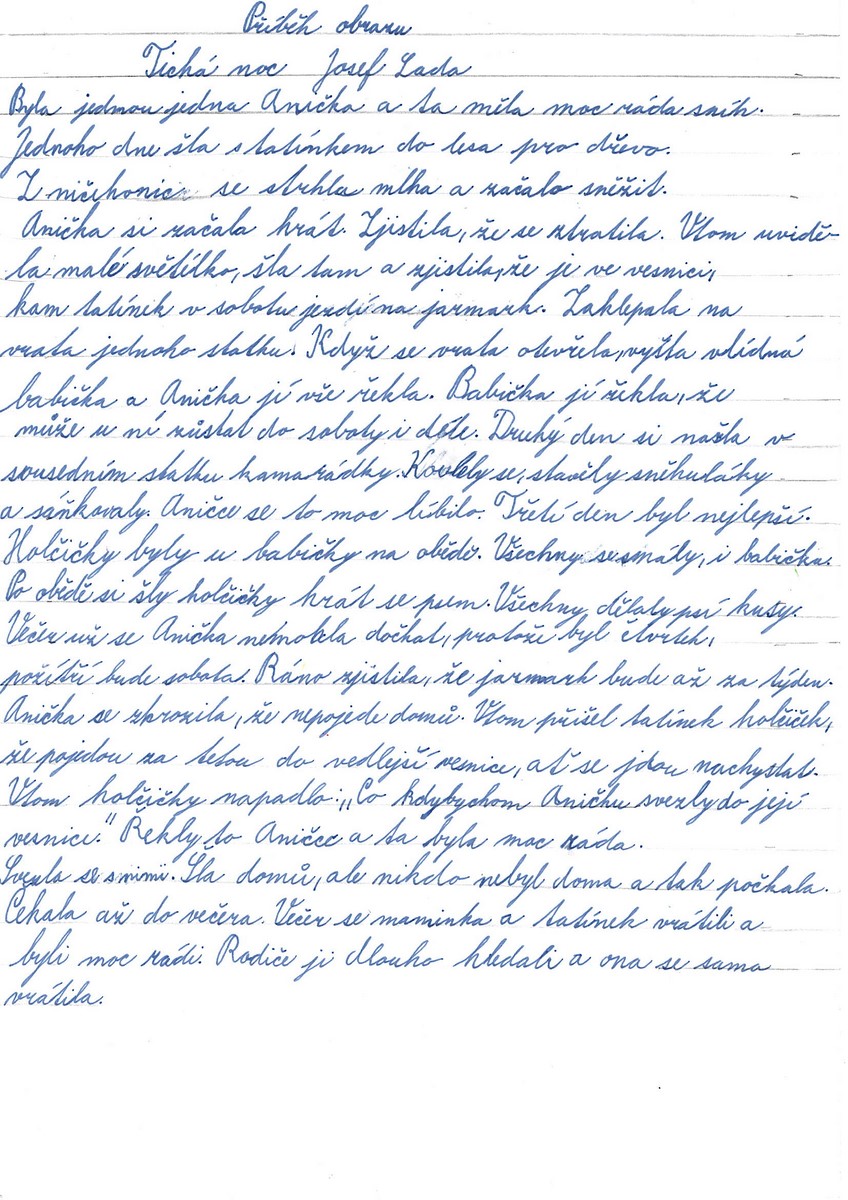 Příběh obrazu
Tichá noc Josef Lada
Byla jednou jedna Anička a ta měla moc ráda sníh.
Jednoho dne šla s tatínkem do lesa pro dřevo.
Z ničehonic se strhla mlha a začalo sněžit.
Anička si začala hrát. Zjistila, že se ztratila. Vtom uvidě-
la malé světélko, šla tam a zjistila, že je ve vesnici,
kam tatínek v sobotu jezdí na jarmark. Zaklepala na
vrata jednoho statku. Když se vrata otevřela, vyšla vlídná
babička a Anička jí vše řekla. Babička jí řekla, že
může u ní zůstat do soboty i déle. Druhý den si našla v
sousedním statku kamarádky. Koulely se, stavěly sněhuláky
a sáňkovaly. Aničce se to moc líbilo. Třetí den byl nejlepší.
Holčičky byly u babičky na obědě. Všechny se smály, i babička.
Po obědě si šly holčičky hrát se psem. Všechny dělaly psí kusy.
Večer už se Anička nemohla dočkat, protože byl čtvrtek,
pozítří bude sobota. Ráno zjistila, že jarmark bude až za týden.
Anička se zhrozila, že nepojede domů. Vtom přišel tatínek holčiček,
že pojedou za tetou do vedlejší vesnice, ať se jdou nachystat.
Vtom holčičky napadlo: „Co kdybychom Aničku svezly do její
vesnice." Řekly to Aničce a ta byla moc ráda.
Svezla se s nimi. Šla domů, ale nikdo nebyl doma a tak počkala.
Čekala až do večera. Večer se maminka a tatínek vrátili a
byli moc rádi. Rodiče ji dlouho hledali a ona se sama
vrátila.